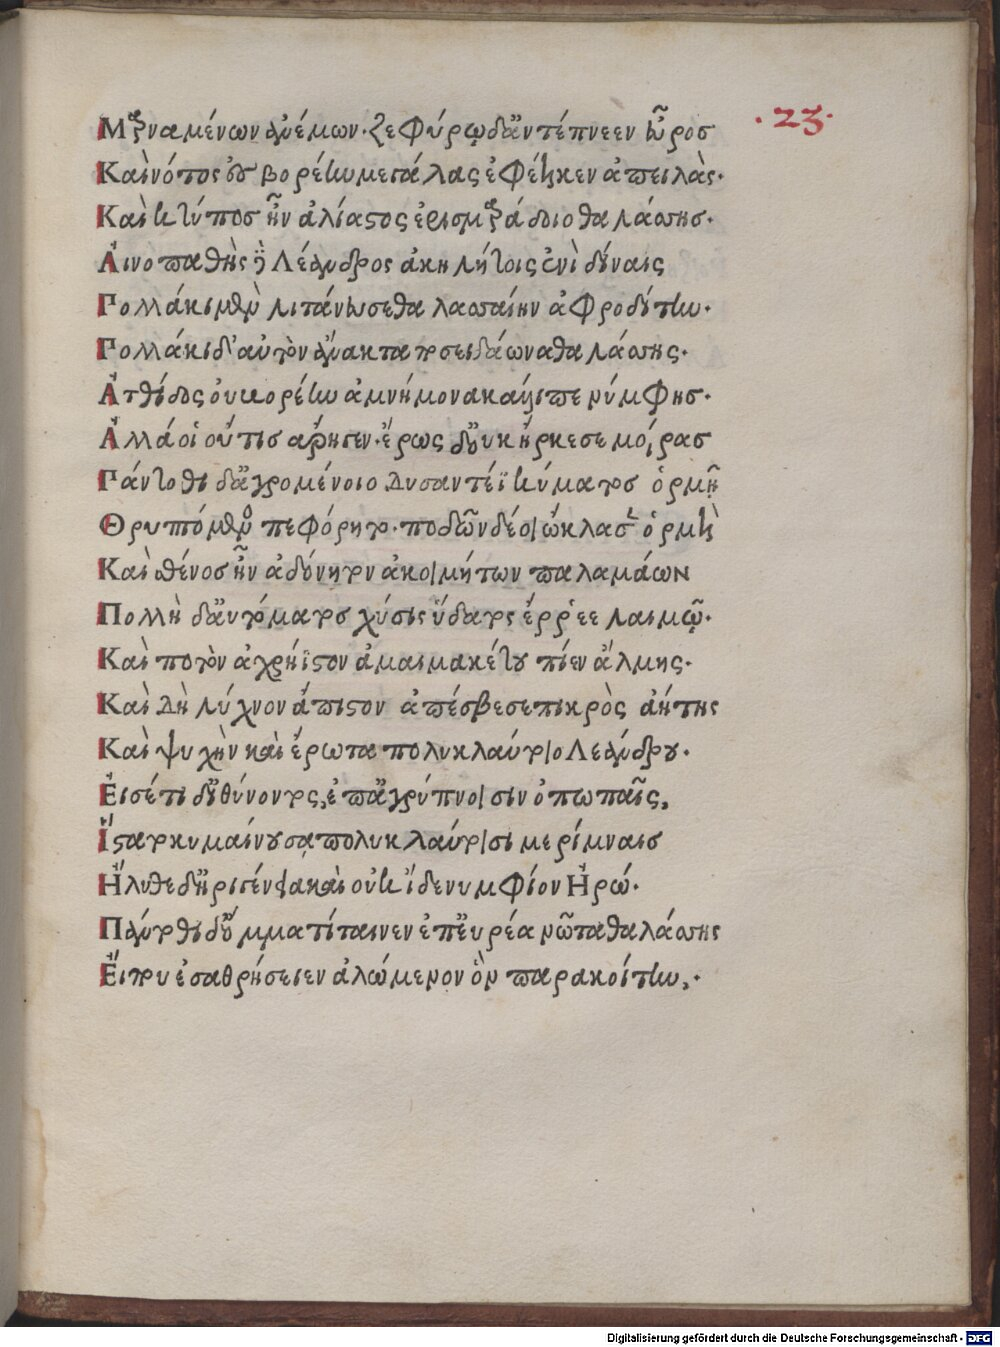 Μαρναμένων ἀνέμων· ζεφύρῳ δ' ἀντέπνεεν εὖρος ·23·
Καὶ νότος ἐς βορέην μεγάλας ἐφέηκεν ἀπειλὰς·
Καὶ κτύπος ἦν ἀλίαστος ἐρισμαράδοιο θαλάσσης·
Αἰνοπαθὴς δὲ Λέανδρος ἀκηλήτοις ἐνὶ δίναις
Πολλάκι μὲν λιτάνευσε θαλασσαίην ἀφροδίτην·
Πολλάκι δ' αὐτὸν ἄνακτα ποσειδάωνα θαλάσσης·
Ἀτθίδος οὐ βορέην ἀμνήμονα κάλλιπε νύμφης·
Ἀλλά οἱ οὔτις ἄρηγεν· ἔρως δ' οὐκ ἤρκεσε μοίρας
Πάντοθι δ' ἀγρομένοιο δυσαντέϊ κύματος ὁρμῇ
Θρυπτόμενος πεφόρητο· ποδῶν δέ οἱ ὤκλασεν ὁρμὴ
Καὶ σθένος ἦν ἀδόνητον ἀκοιμήτων παλαμάων
Πολλὴ δ' αὐτόματος χύσις ὕδατος ἔρῥεε λαιμῷ·
Καὶ ποτὸν ἀχρήϊστον ἀμαιμακέτου πίεν ἅλμης·
Καὶ δὴ λύχνον ἄπιστον ἀπέσβεσε πικρὸς ἀήτης
Καὶ ψυχὴν καὶ ἔρωτα πολυκλαύτοιο Λεάνδρου·
Εἰσέτι δ' ἰθύνοντος, ἐπ' ἀγρύπνοισιν ὀπωπαῖς,
Ἵστατο κυμαίνουσα πολυκλαύτοισι μερίμναις
Ἤλυθε δ' ἠριγένεια καὶ οὐκ ἴδε νυμφίον Ἡρώ·
Πάντοθι δ' ὄμμα τίταινεν ἐπ' εὐρέα νῶτα θαλάσσης
Εἴ που ἐσαθρήσειεν ἀλώμενον ὃν παρακοίτην,·
Digitalisierung gefördert durch die Deutsche Forschungsgemeinschaft - DFG